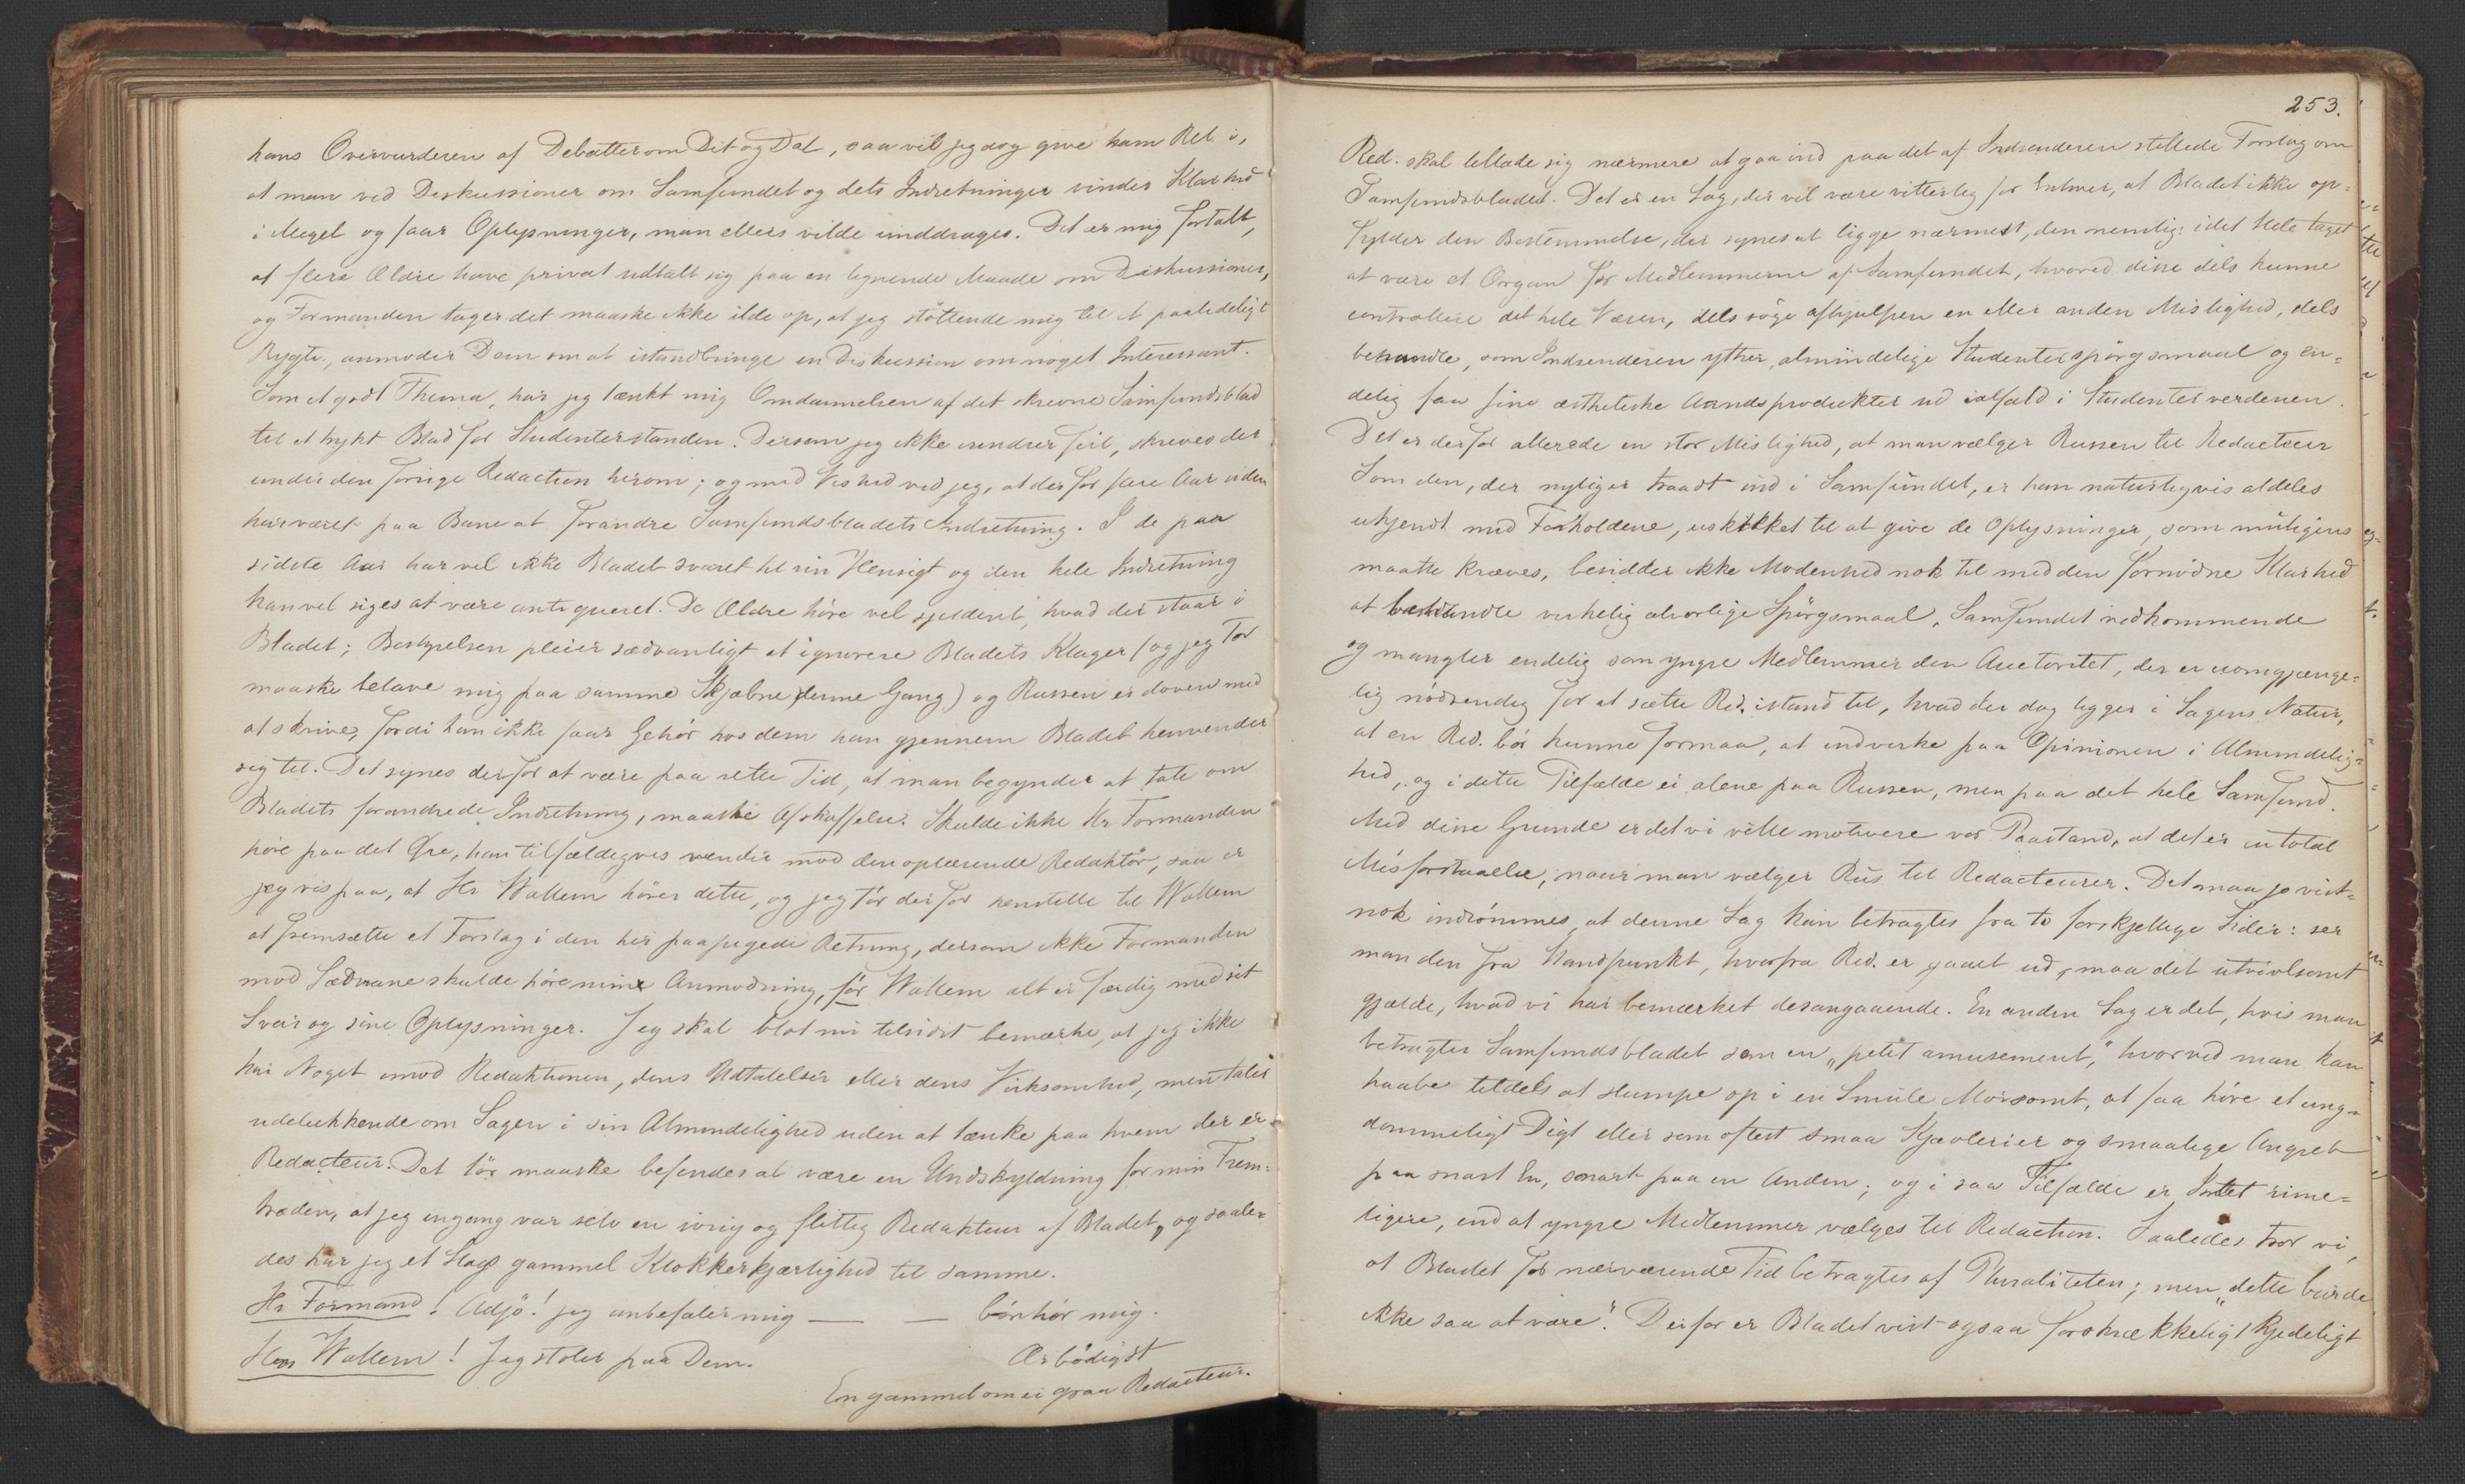 hans Overvurderen af Debatter om Dit og Dat, saa vil jeg dog give ham Ret i,
at man ved Diskussioner om Samfundet og dets Indretninger vinder Klarhed
i Meget og faar Oplysninger, man ellers vilde unddrages. Det er mig fortalt,
at flere Ældre have privat udtalt sig paa en lignende Maade om Diskussioner,
og Formanden tager det maaske ikke ilde op, at jeg støttende mig til et paalideligt
Rygte, anmoder Dem om at istandbringe en Diskussion om noget Interessant.
Som et godt Thema, har jeg tænkt mig Omdannelsen af det skrevne Samfundsblad
til et trykt Blad for Studenterstanden. Dersom jeg ikke erindrer feil, skreves der
under den forrige Redaction herom; og med Vished ved jeg, at der for flere Aar siden
har været paa Bane at forandre Samfundsbladets Indretning. I de paa
sidste Aar har vel ikke Bladet svaret til sin Hensigt og den hele Indretning
kan vel siges at være antiqueret. De Ældre høre vel sjeldent, hvad der staar i
Bladet; Bestyrelsen pleier sædvanligt at ignorere Bladets Klager (og jeg tør
maaske belave mig paa samme Skjæbne denne Gang) og Russen er doven med
at skrive, fordi han ikke faar Gehør hos dem han gjennem Bladet henvender
sig til. Det synes derfor at være paa rette Tid, at man begynder at tale om
Bladets forandrede Indretning, maaske Afskaffelse. Skulde ikke Hr Formanden
høre paa det Øre, han tilfældigvis vender mod den oplæsende Redaktør, saa er
jeg vis paa, at Hr Wallem hører dette, og jeg tør derfor henstille til Wallem
at fremsætte et Forslag i den her paapegede Retning, dersom ikke Formanden
mod Sædvane skulde høre min Anmodning, før Wallem alt er færdig med sit
Svar og sine Oplysninger. Jeg skal blot nu tilsidst bemærke, at jeg ikke
har Noget imod Redaktionen, dens Udtalelser eller dens Virksomhed, men taler
udelukkende om Sagen i sin Almindelighed uden at tænke paa hvem der er
Redacteur. Det tør maaske befindes at være en Undskyldning for min Frem=
træden, at jeg engang var selv en ivrig og flittig Redakteur af Bladet, og saale=
des har jeg et Slags gammel Klokkerkjærlighed til samme.
Hr Formand! Adjø! jeg anbefaler mig — — bønhør mig.
Herr Wallem! Jeg stoler paa Dem.
Ærbødigst
En gammel om ei graa Redacteur.
253.
Red. skal tillade sig nærmere at gaa ind paa det af Indsenderen stillede Forslag om
Samfundsbladet. Det er en Sag, der vil være vitterlig for Enhver, at Bladet ikke op=
fylder den Bestemmelse, der synes at ligge nærmest, den nemlig: i det Hele taget
at være et Organ for Medlemmerne af Samfundet, hvorved disse dels kunne
controllere det hele Væsen, dels søge afhjulpen en eller anden Mislighed, dels
behandle, som Indsenderen ytrer, almindelige Studenterspørgsmaal og en=
delig faa sine æsthetiske Aandsprodukter ud ialfald i Studenterverdenen.
Det er derfor allerede en stor Mislighed, at man vælger Russen til Redacteur
Som den, der nylig er traadt ind i Samfundet, er han naturligvis aldeles
ukjendt med Forholdene, uskikket til at give de Oplysninger, som muligens
maatte kræves, besidder ikke Modenhed nok til med den fornødne Klarhed
at behandle virkelig alvorlige Spørgsmaal, Samfundet vedkommende
og mangler endelig som yngre Medlemmer den Auctoritet, der er uomgjænge=
lig nødvendig for at sætte Red. istand til, hvad der dog ligger i Sagens Natur,
at en Red. bør kunne formaa, at indvirke paa Opinionen i Almindelig=
hed, og i dette Tilfælde ei alene paa Russen, men paa det hele Samfund.
Med disse Grunde er det vi ville motivere vor Paastand, at det er en total
Misforstaaelse, naar man vælger Rus til Redacteurer. Det maa jo vist=
nok indrømmes, at denne Sag kan betragtes fra to forskjellige Sider: ser
man den fra Standpunkt, hvorfra Red. er gaaet ud, maa det utvivlsomt
gjælde, hvad vi har bemærket desangaaende. En anden Sag er det, hvis man
betragter Samfundsbladet som en „petit amusement,“ hvorved man kan
haabe tildels at slumpe op i en Smule Morsomt, at faa høre et ung=
dommeligt Digt eller som oftest smaa Kjævlerier og smaalige Angreb
paa snart En, snart paa en Anden; og i saa Tilfælde er Intet rime=
ligere, end at yngre Medlemmer vælges til Redaction. Saaledes tror vi,
at Bladet for nærværende Tid betragtes af Pluraliteten; men „dette burde
ikke saa at være“. Derfor er Bladet vist ogsaa forskrækkeligt kjedeligt